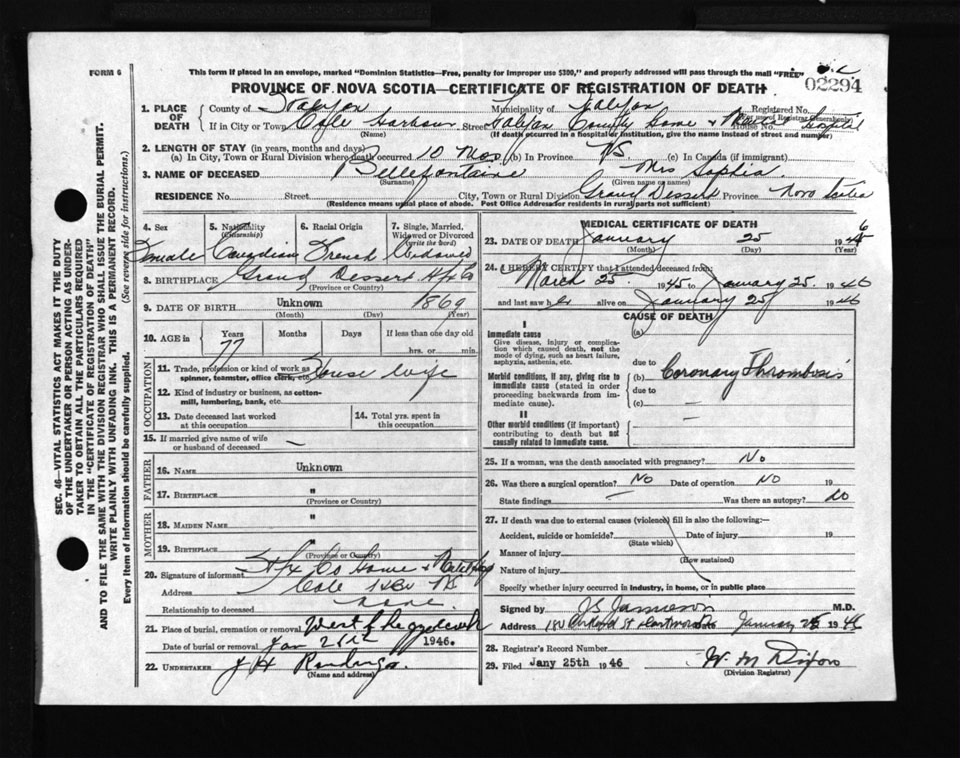 FORM 6
This form if placed in an envelope, marked "Dominion Statistics—Free, penalty for improper use $300," and properly addressed will pass through the mail "FREE"
02294
PROVINCE OF NOVA SCOTIA—CERTIFICATE OF REGISTRATION OF DEATH
1. PLACE OF DEATH
County of Halifax Municipality of Halifax Registered No.
(For use of Registrar General only)
If in City or Town Cole Harbour Street Halifax County Home & Hospital House No.
(Name) (If death occurred in hospital or institution, give the name instead of street and number)
2. LENGTH OF STAY (in years, months and days)
(a) In City, Town or Rural Division where death occurred 10 mos (b) In Province NS (c) In Canada (if immigrant)
3. NAME OF DECEASED Bellefontaine Mrs Sophia.
(Surname) (Given name or names)
RESIDENCE No. Street City, Town or Rural Division Grand Dessert Province Nova Scotia
(Residence means usual place of abode. Post Office Address for residences in rural parts not sufficient)
4. Sex
Female
5. Nationality
(Citizenship)
Canadian
6. Racial Origin
French
7. Single, Married, Widowed or Divorced
(write the word)
Widowed
8. BIRTHPLACE Grand Dessert Hfx Co
(Province or Country)
9. DATE OF BIRTH Unknown 1869
(Month) (Day) (Year)
10. AGE in
Years Months Days If less than one day old
77 hrs. or min.
OCCUPATION
11. Trade, profession or kind of work as spinner, teamster, office clerk, etc. House wife
12. Kind of industry or business, as cotton-mill, lumbering, bank, etc.
13. Date deceased last worked at this occupation
14. Total yrs. spent in this occupation
15. If married give name of wife or husband of deceased —
FATHER
16. NAME Unknown
17. BIRTHPLACE "
(Province or Country)
MOTHER
18. MAIDEN NAME "
19. BIRTHPLACE
(Province or Country)
20. Signature of informant Hfx Co Home &
Address Cole Hbr NS
Relationship to deceased none.
21. Place of burial, cremation or removal
Date of burial or removal Jan 1946.
22. UNDERTAKER J H
(Name and address)
MEDICAL CERTIFICATE OF DEATH
23. DATE OF DEATH January 25 1946
(Month) (Day) (Year)
24. I HEREBY CERTIFY that I attended deceased from:
March 25. 1945 to January 25. 1946
and last saw her alive on January 25 1946
CAUSE OF DEATH
I
Immediate cause
Give disease, injury or complication which caused death, not the mode of dying, such as heart failure, asphyxia, asthenia, etc.
Morbid conditions, if any, giving rise to immediate cause (stated in order proceeding backwards from immediate cause).
II
Other morbid conditions (if important) contributing to death but not causally related to immediate cause.
(a)
due to
(b) Coronary Thrombosis
due to
(c) —
—
25. If a woman, was the death associated with pregnancy? No
26. Was there a surgical operation? NO Date of operation NO 19
State findings — Was there an autopsy? NO
27. If death was due to external causes (violence) fill in also the following:—
Accident, suicide or homicide? Date of injury 19
(State which)
Manner of injury
(How sustained)
Nature of injury
Specify whether injury occurred in industry, in home, or in public place
Signed by M.D.
Address St Dartmouth Date January 25 1946
28. Registrar's Record Number
29. Filed Jany 25th 1946 W. M Dixon
(Division Registrar)
SEC. 46—VITAL STATISTICS ACT MAKES IT THE DUTY
OF THE UNDERTAKER OR PERSON ACTING AS UNDER-
TAKER TO OBTAIN ALL THE PARTICULARS REQUIRED
IN THE "CERTIFICATE OF REGISTRATION OF DEATH"
AND TO FILE THE SAME WITH THE DIVISION REGISTRAR WHO SHALL ISSUE THE BURIAL PERMIT.
WRITE PLAINLY WITH UNFADING INK. THIS IS A PERMANENT RECORD.
Every item of information should be carefully supplied. (See reverse side for instructions.)